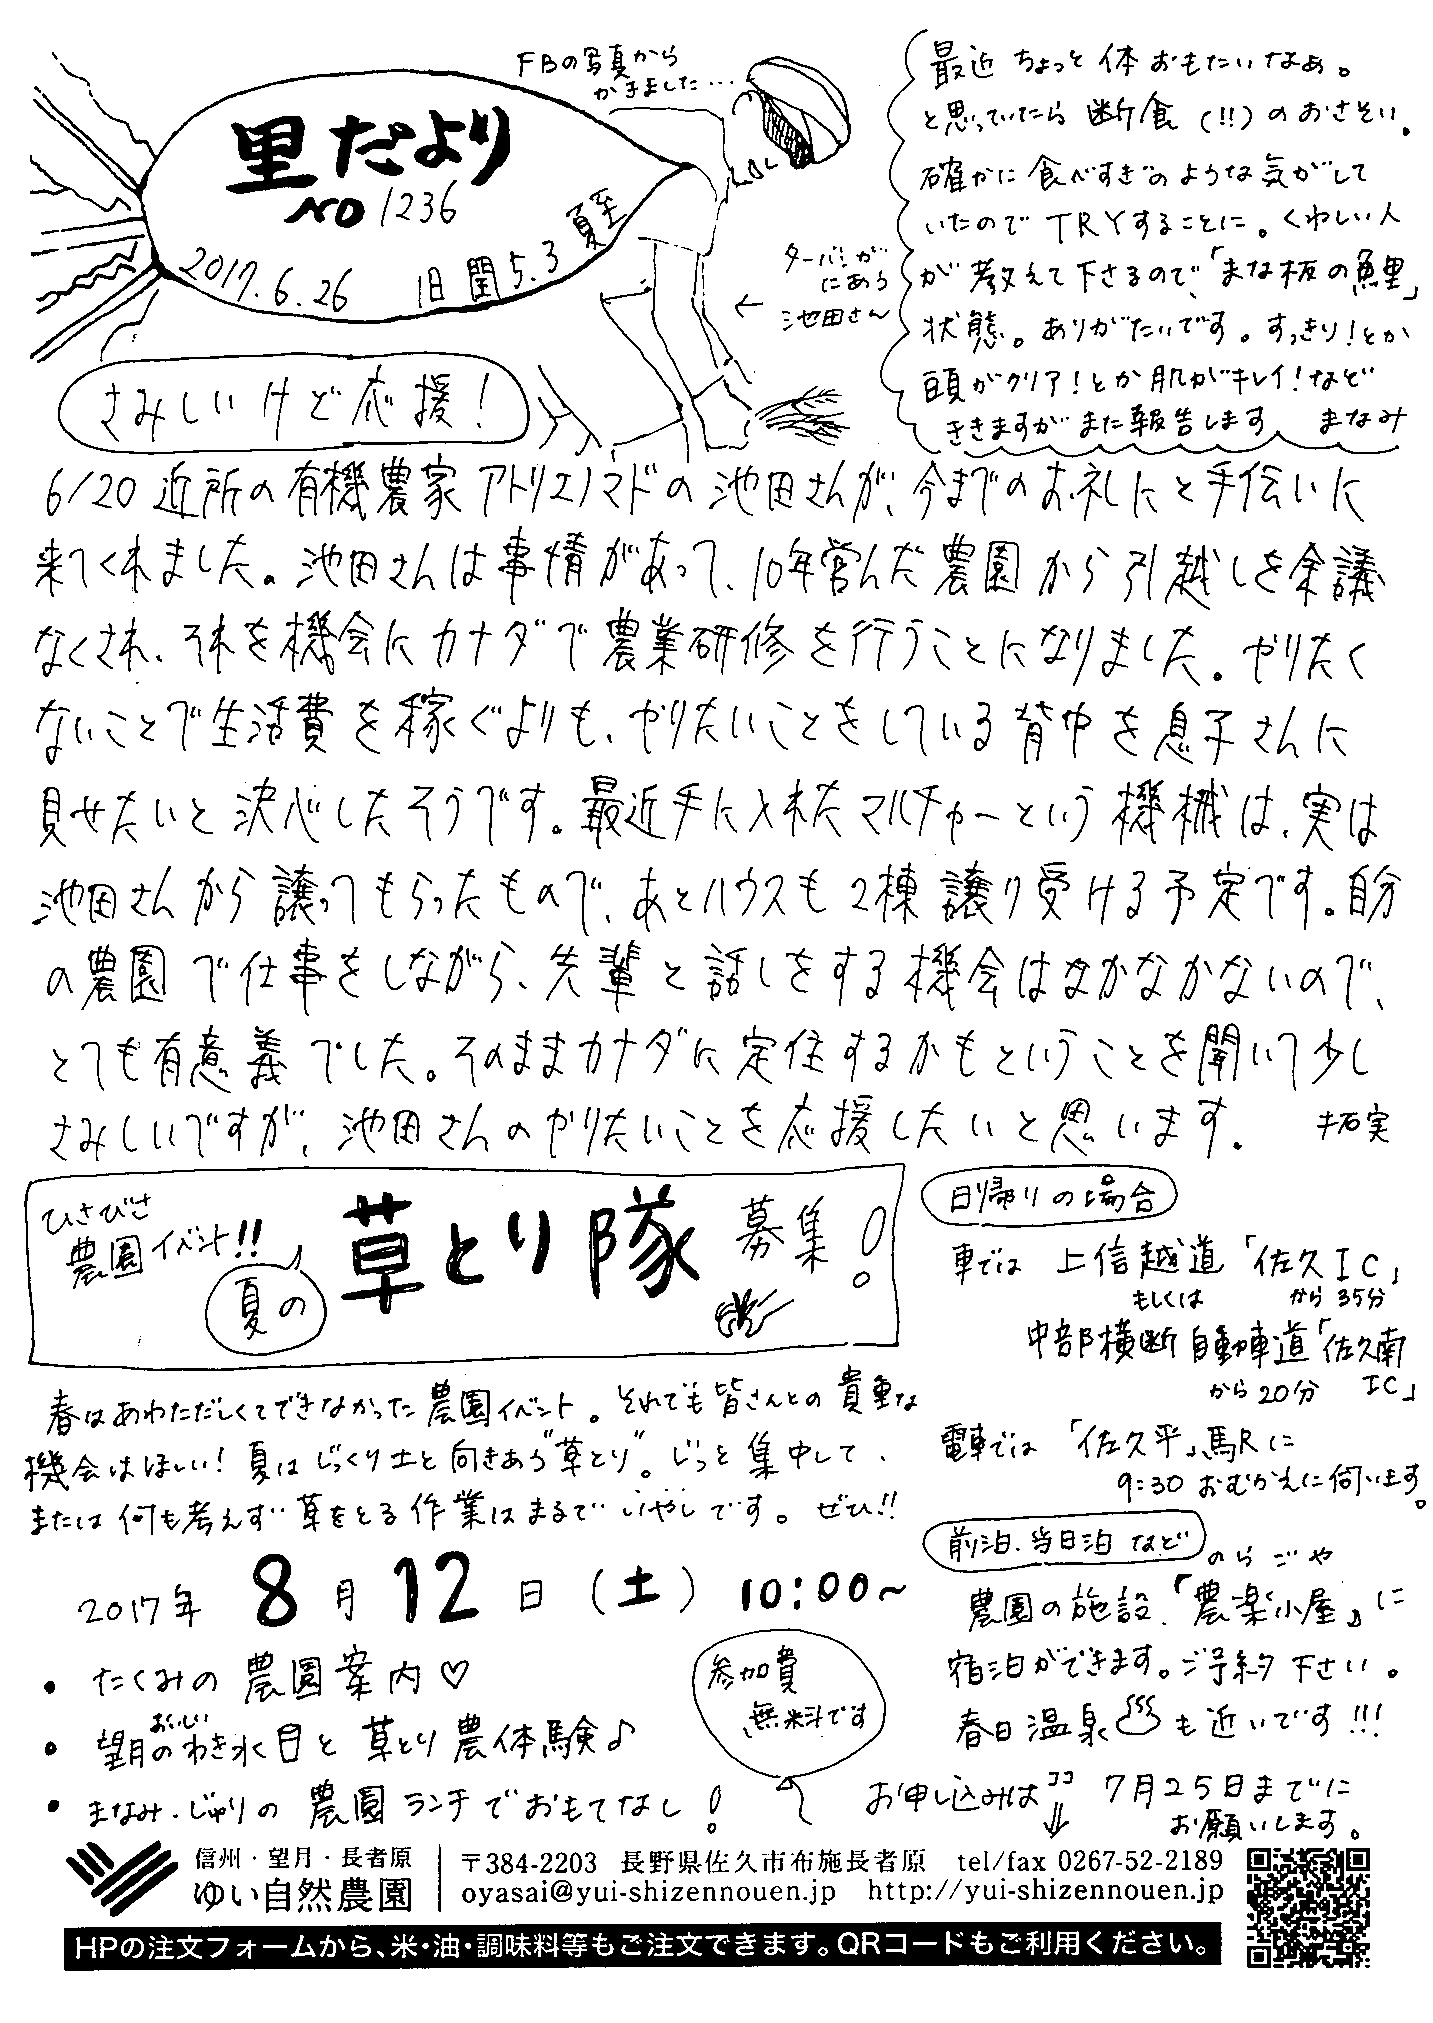 里だより
NO 1236
2017.6.26 旧閏5.3 夏至
FBの写真から
かきました…
ターバンが
にあう
池田さん
最近 ちょっと 体 おもたいなぁ。
と思っていたら 断食(!!)のおさそい。
確かに 食べすぎのような気がして
いたので TRYすることに。くわしい人
が 教えて下さるので、「まな板の鯉」
状態。ありがたいです。すっきり!とか
頭がクリア!とか 肌がキレイ!など
ききますが また報告します まなみ
さみしいけど応援!
6/20 近所の有機農家 アトリエノマドの 池田さんが、今までのお礼にと手伝いに
来てくれました。池田さんは事情があって、10年営んだ農園から引越しを余議
なくされ、それを機会にカナダで農業研修を行うことになりました。やりたく
ないことで生活費を稼ぐよりも、やりたいことをしている背中を息子さんに
見せたいと決心したそうです。最近手に入れたマルチャーという機械は、実は
池田さんから譲ってもらったもので、あとハウスも2棟譲り受ける予定です。自分
の農園で仕事をしながら、先輩と話しをする機会はなかなかないので、
とても有意義でした。そのままカナダに定住するかもということを聞いて少し
さみしいですが、池田さんのやりたいことを応援したいと思います。 拓実
ひさびさ
農園イベント!!
夏の
草とり隊 募集!
春はあわただしくてできなかった農園イベント。それでも皆さんとの貴重な
機会はほしい! 夏はじっくり土と向きあう"草とり"。じっと集中して、
または何も考えず草をとる作業はまるでいやしです。ぜひ!!
2017年 8月12日(土) 10:00~
・たくみの農園案内♡
・望月のおいしいわき水と草とり農体験♪
・まなみ・じゅりの農園ランチでおもてなし!
参加費
無料です
日帰りの場合
車では 上信越道「佐久IC」
から35分
もしくは
中部横断自動車道「佐久南
IC」
から20分
電車では 「佐久平」駅に
9:30 おむかえに伺います。
前泊、当日泊 など
のらごや
農園の施設、「農楽小屋」に
宿泊ができます。ご予約下さい。
春日温泉♨も近いです!!!
お申し込みはココ⇓ 7月25日までに
お願いします。
信州・望月・長者原
ゆい自然農園
〒384-2203 長野県佐久市布施長者原 tel/fax 0267-52-2189
oyasai@yui-shizennouen.jp http://yui-shizennouen.jp
HPの注文フォームから、米・油・調味料等もご注文できます。QRコードもご利用ください。